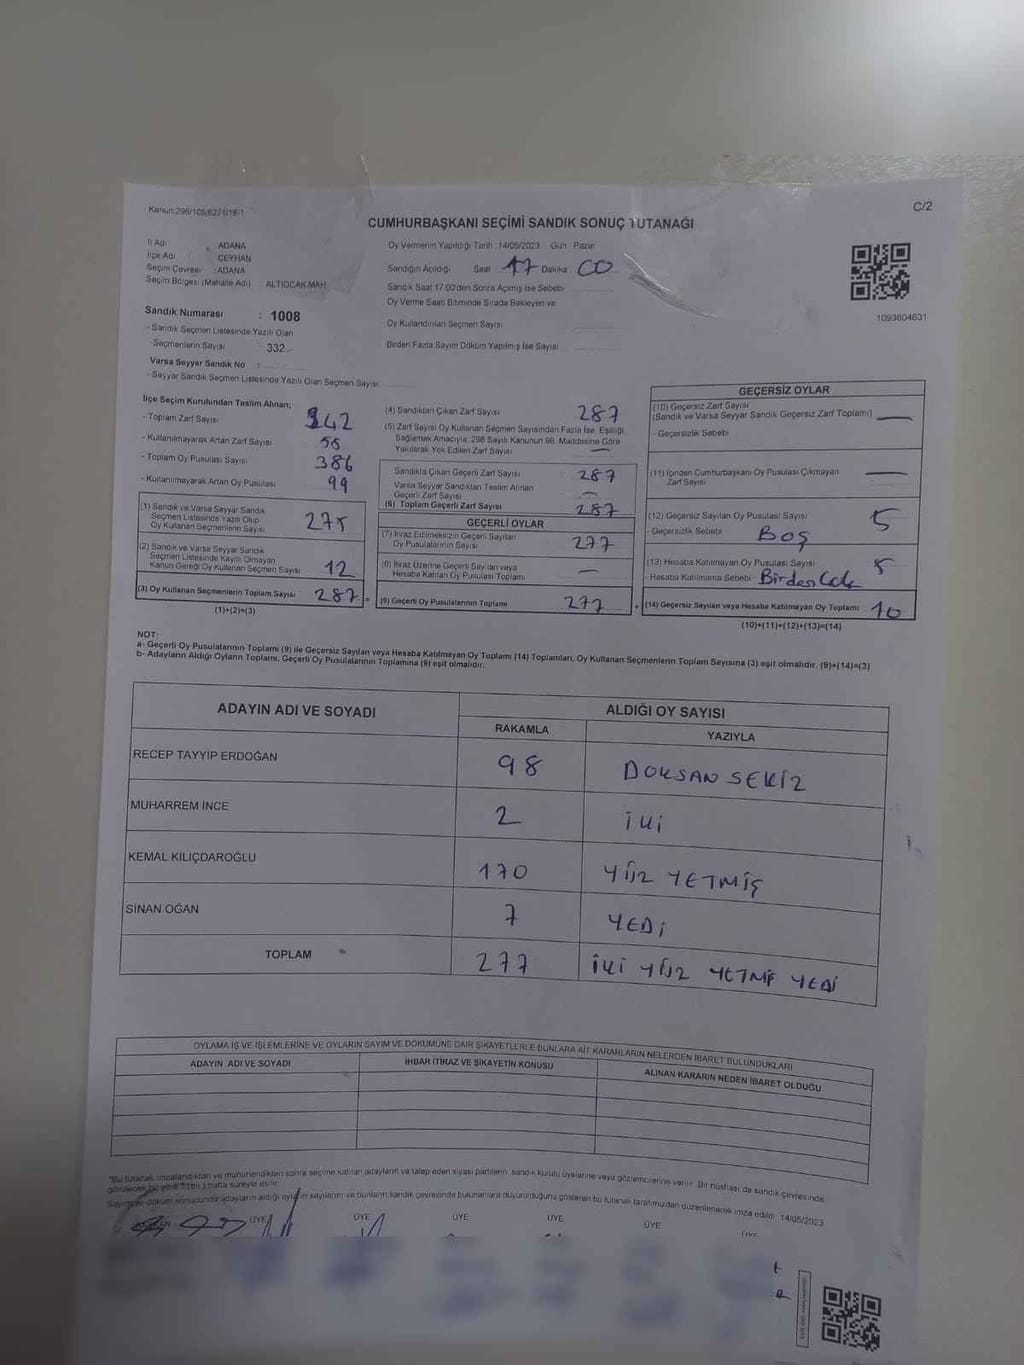 Kanun:296/105/6271/18-1
C/2
CUMHURBAŞKANI SEÇİMİ SANDIK SONUÇ TUTANAĞI
İl Adı : ADANA
İlçe Adı : CEYHAN
Seçim Çevresi : ADANA
Seçim Bölgesi (Mahalle Adı) ALTIOCAK MAH.
Oy Vermenin Yapıldığı Tarih :14/05/2023 Gün : Pazar
Sandığın Açıldığı Saat 17 Dakika 00
Sandık Saat 17:00'den Sonra Açılmış İse Sebebi
Oy Verme Saati Bitiminde Sırada Bekleyen ve
Oy Kullandırılan Seçmen Sayısı
Birden Fazla Sayım Döküm Yapılmış İse Sayısı
1093604631
Sandık Numarası : 1008
- Sandık Seçmen Listesinde Yazılı Olan
Seçmenlerin Sayısı 332
Varsa Seyyar Sandık No :
- Seyyar Sandık Seçmen Listesinde Yazılı Olan Seçmen Sayısı
İlçe Seçim Kurulundan Teslim Alınan;
- Toplam Zarf Sayısı 342
- Kullanılmayarak Artan Zarf Sayısı 55
- Toplam Oy Pusulası Sayısı 386
- Kullanılmayarak Artan Oy Pusulası 99
(1) Sandık ve Varsa Seyyar Sandık
Seçmen Listesinde Yazılı Olup
Oy Kullanan Seçmenlerin Sayısı 275
(2) Sandık ve Varsa Seyyar Sandık
Seçmen Listesinde Kayıtlı Olmayan
Kanun Gereği Oy Kullanan Seçmen Sayısı 12
(3) Oy Kullanan Seçmenlerin Toplam Sayısı 287 =
(1)+(2)=(3)
(4) Sandıktan Çıkan Zarf Sayısı 287
(5) Zarf Sayısı Oy Kullanan Seçmen Sayısından Fazla İse, Eşitliği
Sağlamak Amacıyla, 298 Sayılı Kanunun 98. Maddesine Göre
Yakılarak Yok Edilen Zarf Sayısı —
Sandıkta Çıkan Geçerli Zarf Sayısı 287
Varsa Seyyar Sandıktan Teslim Alınan
Geçerli Zarf Sayısı —
(6) Toplam Geçerli Zarf Sayısı 287
GEÇERLİ OYLAR
(7) İtiraz Edilmeksizin Geçerli Sayılan
Oy Pusulalarının Sayısı 277
(8) İtiraz Üzerine Geçerli Sayılan veya
Hesaba Katılan Oy Pusulası Toplamı —
(9) Geçerli Oy Pusulalarının Toplamı 277 +
GEÇERSİZ OYLAR
(10) Geçersiz Zarf Sayısı
(Sandık ve Varsa Seyyar Sandık Geçersiz Zarf Toplamı) —
- Geçersizlik Sebebi
(11) İçinden Cumhurbaşkanı Oy Pusulası Çıkmayan
Zarf Sayısı —
(12) Geçersiz Sayılan Oy Pusulası Sayısı 5
- Geçersizlik Sebebi Boş
(13) Hesaba Katılmayan Oy Pusulası Sayısı 5
- Hesaba Katılmama Sebebi Birden Çok
(14) Geçersiz Sayılan veya Hesaba Katılmayan Oy Toplamı 10
(10)+(11)+(12)+(13)=(14)
NOT:
a- Geçerli Oy Pusulalarının Toplamı (9) ile Geçersiz Sayılan veya Hesaba Katılmayan Oy Toplamı (14) Toplamları, Oy Kullanan Seçmenlerin Toplam Sayısına (3) eşit olmalıdır. (9)+(14)=(3)
b- Adayların Aldığı Oyların Toplamı, Geçerli Oy Pusulalarının Toplamına (9) eşit olmalıdır.
ADAYIN ADI VE SOYADI ALDIĞI OY SAYISI
RAKAMLA YAZIYLA
RECEP TAYYİP ERDOĞAN 98 DOKSAN SEKİZ
MUHARREM İNCE 2 İKİ
KEMAL KILIÇDAROĞLU 170 YÜZ YETMİŞ
SİNAN OĞAN 7 YEDİ
TOPLAM 277 İKİ YÜZ YETMİŞ YEDİ
OYLAMA İŞ VE İŞLEMLERİNE VE OYLARIN SAYIM VE DÖKÜMÜNE DAİR ŞİKAYETLERLE BUNLARA AİT KARARLARIN NELERDEN İBARET BULUNDUKLARI
ADAYIN ADI VE SOYADI İHBAR İTİRAZ VE ŞİKAYETİN KONUSU ALINAN KARARIN NEDEN İBARET OLDUĞU
"Bu tutanak imzalandıktan ve mühürlendikten sonra seçime katılan adayların ve talep eden siyasi partilerin sandık kurulu üyelerine veya gözlemcilerine verilir. Bir nüshası da sandık çevresinde
görülecek bir yere 1 (bir) hafta süreyle asılır.
Sayım ve döküm sonucunda adayların aldığı oyların sayılarını ve bunların sandık çevresinde bulunanlara duyurulduğunu gösteren bu tutanak tarafımızdan düzenlenerek imza edildi. 14/05/2023
ÜYE ÜYE ÜYE ÜYE ÜYE ÜYE